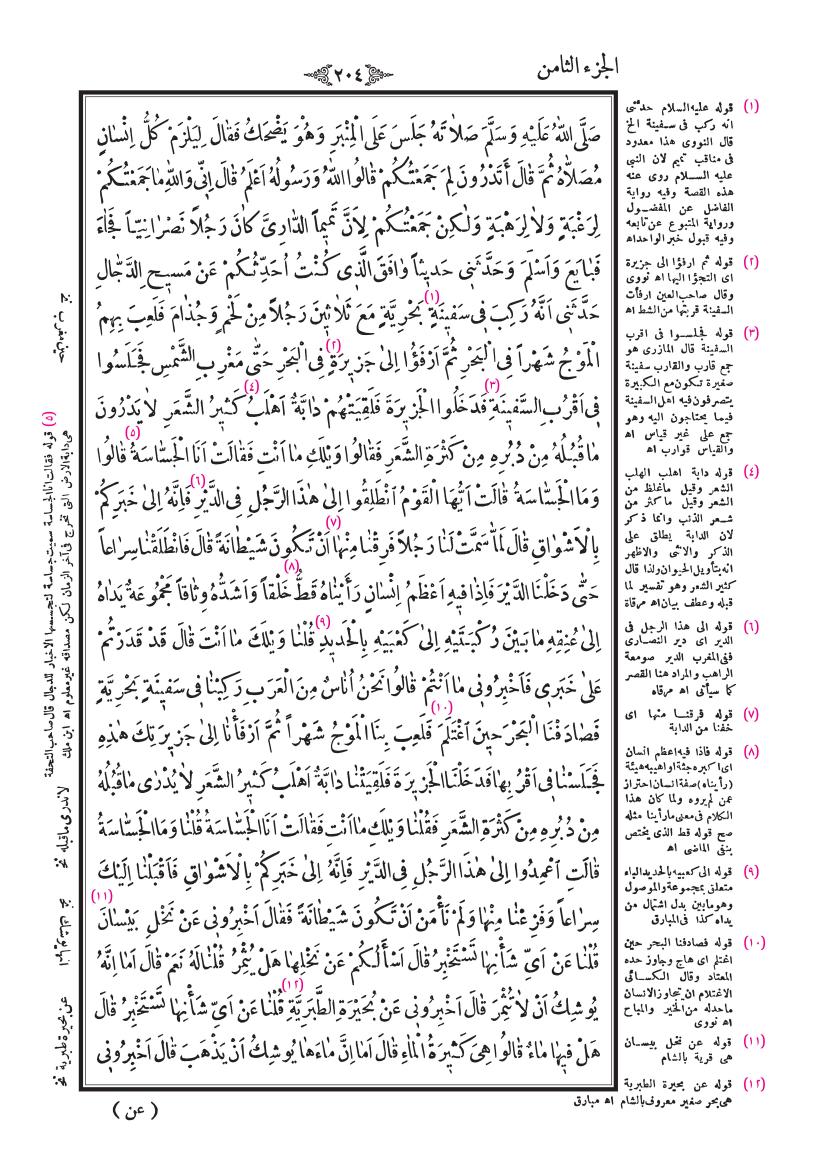 الجزء الثامن
٢٠٤
صَلَّى اللهُ عَلَيْهِ وَسَلَّمَ صَلَاتَهُ جَلَسَ عَلَى الْمِنْبَرِ وَهُوَ يَضْحَكُ فَقَالَ لِيَلْزَمْ كُلُّ اِنْسَانٍ
مُصَلَّاهُ ثُمَّ قَالَ أَتَدْرُونَ لِمَ جَمَعْتُكُمْ قَالُوا اللهُ وَرَسُولُهُ اَعْلَمُ قَالَ اِنِّى وَاللهِ مَا جَمَعْتُكُمْ
لِرَغْبَةٍ وَلَا لِرَهْبَةٍ وَلٰكِنْ جَمَعْتُكُمْ لِاَنَّ تَمِيماً الدَّارِىَّ كَانَ رَجُلاً نَصْرَانِيّاً فَجَاءَ
فَبَايَعَ وَاَسْلَمَ وَحَدَّثَنِى حَدِيثاً وَافَقَ الَّذِى كُنْتُ اُحَدِّثُكُمْ عَنْ مَسِيحِ الدَّجَّالِ
حَدَّثَنِى اَنَّهُ رَكِبَ فِى سَفِينَةٍ (١) بَحْرِيَّةٍ مَعَ ثَلَاثِينَ رَجُلاً مِنْ لَخْمٍ وَجُذَامَ فَلَعِبَ بِهِمُ
الْمَوْجُ شَهْراً فِى الْبَحْرِ ثُمَّ اَرْفَؤُا اِلَى جَزِيرَةٍ (٢) فِى الْبَحْرِ حَتَّى مَغْرِبِ الشَّمْسِ فَجَلَسُوا
فِى اَقْرُبِ السَّفِينَةِ (٣) فَدَخَلُوا الْجَزِيرَةَ فَلَقِيَتْهُمْ دَابَّةٌ اَهْلَبُ (٤) كَثِيرُ الشَّعَرِ لَا يَدْرُونَ
مَا قُبُلُهُ مِنْ دُبُرِهِ مِنْ كَثْرَةِ الشَّعَرِ فَقَالُوا وَيْلَكِ مَا اَنْتِ فَقَالَتْ اَنَا الْجَسَّاسَةُ (٥) قَالُوا
وَمَا الْجَسَّاسَةُ قَالَتْ اَيُّهَا الْقَوْمُ اَنْطَلِقُوا اِلَى هٰذَا الرَّجُلِ فِى الدَّيْرِ (٦) فَاِنَّهُ اِلَى خَبَرِكُمْ
بِالْاَشْوَاقِ قَالَ لَمَّا سَمَّتْ لَنَا رَجُلاً فَرِقْنَا مِنْهَا (٧) اَنْ تَكُونَ شَيْطَانَةً قَالَ فَانْطَلَقْنَا سِرَاعاً
حَتَّى دَخَلْنَا الدَّيْرَ فَاِذَا فِيهِ اَعْظَمُ اِنْسَانٍ (٨) رَأَيْنَاهُ قَطُّ خَلْقاً وَاَشَدُّهُ وِثَاقاً مَجْمُوعَةٌ يَدَاهُ
اِلَى عُنُقِهِ مَا بَيْنَ رُكْبَتَيْهِ اِلَى كَعْبَيْهِ بِالْحَدِيدِ (٩) قُلْنَا وَيْلَكَ مَا اَنْتَ قَالَ قَدْ قَدَرْتُمْ
عَلَى خَبَرِى فَاَخْبِرُونِى مَا اَنْتُمْ قَالُوا نَحْنُ اُنَاسٌ مِنَ الْعَرَبِ رَكِبْنَا فِى سَفِينَةٍ بَحْرِيَّةٍ
فَصَادَفْنَا الْبَحْرَ حِينَ اغْتَلَمَ (١٠) فَلَعِبَ بِنَا الْمَوْجُ شَهْراً ثُمَّ اَرْفَأْنَا اِلَى جَزِيرَتِكَ هٰذِهِ
فَجَلَسْنَا فِى اَقْرُبِهَا فَدَخَلْنَا الْجَزِيرَةَ فَلَقِيَتْنَا دَابَّةٌ اَهْلَبُ كَثِيرُ الشَّعَرِ لَا يُدْرَى مَا قُبُلُهُ
مِنْ دُبُرِهِ مِنْ كَثْرَةِ الشَّعَرِ فَقُلْنَا وَيْلَكِ مَا اَنْتِ فَقَالَتْ اَنَا الْجَسَّاسَةُ قُلْنَا وَمَا الْجَسَّاسَةُ
قَالَتِ اَعْمِدُوا اِلَى هٰذَا الرَّجُلِ فِى الدَّيْرِ فَاِنَّهُ اِلَى خَبَرِكُمْ بِالْاَشْوَاقِ فَاَقْبَلْنَا اِلَيْكَ
سِرَاعاً وَفَزِعْنَا مِنْهَا وَلَمْ نَأْمَنْ اَنْ تَكُونَ شَيْطَانَةً فَقَالَ اَخْبِرُونِى عَنْ نَخْلِ بَيْسَانَ (١١)
قُلْنَا عَنْ اَىِّ شَأْنِهَا تَسْتَخْبِرُ قَالَ اَسْأَلُكُمْ عَنْ نَخْلِهَا هَلْ يُثْمِرُ قُلْنَا لَهُ نَعَمْ قَالَ اَمَا اِنَّهُ
يُوشِكُ اَنْ لَا تُثْمِرَ قَالَ اَخْبِرُونِى عَنْ بُحَيْرَةِ الطَّبَرِيَّةِ (١٢) قُلْنَا عَنْ اَىِّ شَأْنِهَا تَسْتَخْبِرُ قَالَ
هَلْ فِيهَا مَاءٌ قَالُوا هِىَ كَثِيرَةُ الْمَاءِ قَالَ اَمَا اِنَّ مَاءَهَا يُوشِكُ اَنْ يَذْهَبَ قَالَ اَخْبِرُونِى
( عن )
(١) قوله عليه السلام حدثنى
انه ركب فى سفينة الخ
قال النووى هذا معدود
فى مناقب تميم لان النبى
عليه السلام روى عنه
هذه القصة وفيه رواية
الفاضل عن المفضول
ورواية المتبوع عن تابعه
وفيه قبول خبر الواحد اه
(٢) قوله ثم ارفؤا الى جزيرة
اى التجؤا اليها اه نووى
وقال صاحب العين ارفأت
السفينة قربتها من الشط اه
(٣) قوله فجلسوا فى اقرب
السفينة قال المازرى هو
جمع قارب والقارب سفينة
صغيرة تكون مع الكبيرة
يتصرفون فيه اهل السفينة
فيما يحتاجون اليه وهو
جمع على غير قياس اه
والقياس قوارب اه
(٤) قوله دابة اهلب الهلب
الشعر وقيل ماغلظ من
الشعر وقيل ماكثر من
شعر الذنب وانما ذكر
لان الدابة يطلق على
الذكر والانثى والاظهر
انه بتأويل الحيوان ولذا قال
كثير الشعر وهو تفسير لما
قبله وعطف بيان اه مرقاة
(٦) قوله الى هذا الرجل فى
الدير اى دير النصارى
ففى المغرب الدير صومعة
الراهب والمراد هنا القصر
كما سيأتى اه مرقاة
(٧) قوله فرقنا منها اى
خفنا من الدابة
(٨) قوله فاذا فيه اعظم انسان
اى اكبره جثة او اهيبه هيئة
(رأيناه) صفة انسان احتراز
عمن لم يروه ولما كان هذا
الكلام فى معنى مارأينا مثله
صح قوله قط الذى يختص
بنفى الماضى اه
(٩) قوله الى كعبيه بالحديد الباء
متعلق بمجموعة والموصول
وهو مابين بدل اشتمال من
يداه كذا فى المبارق
(١٠) قوله فصادفنا البحر حين
اغتلم اى هاج وجاوز حده
المعتاد وقال الكسائى
الاغتلام ان يتجاوز الانسان
ماحدله من الخير والمباح
اه نووى
(١١) قوله عن نخل بيسان
هى قرية بالشام
(١٢) قوله عن بحيرة الطبرية
هى بحر صغير معروف بالشام اه مبارق
(٥) قوله فقالت انا الجساسة سميت جساسة لتجسسها الاخبار للدجال قال صاحب التحفة
هى دابة الارض التى تخرج فى آخر الزمان لكن مصداقه غير معلوم اه ابن ملك
لا ندرى ما قبله نخ
عن بحيرة طبرية نخ